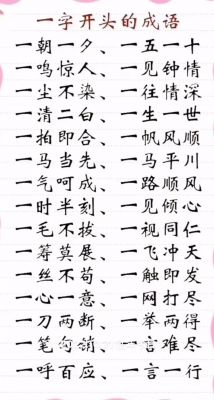 一字开头的成语
一朝一夕、一五一十
一鸣惊人、一见钟情
一尘不染、一往情深
一清二白、一生一世
一拍即合、一帆风顺
一马当先、一马平川
一气呵成、一路顺风
一时半刻、一见倾心
一毛不拔、一视同仁
一筹莫展、一飞冲天
一丝不苟、一触即发
一心一意、一网打尽
一刀两断、一举两得
一笔勾销、一言难尽
一呼百应、一言一行